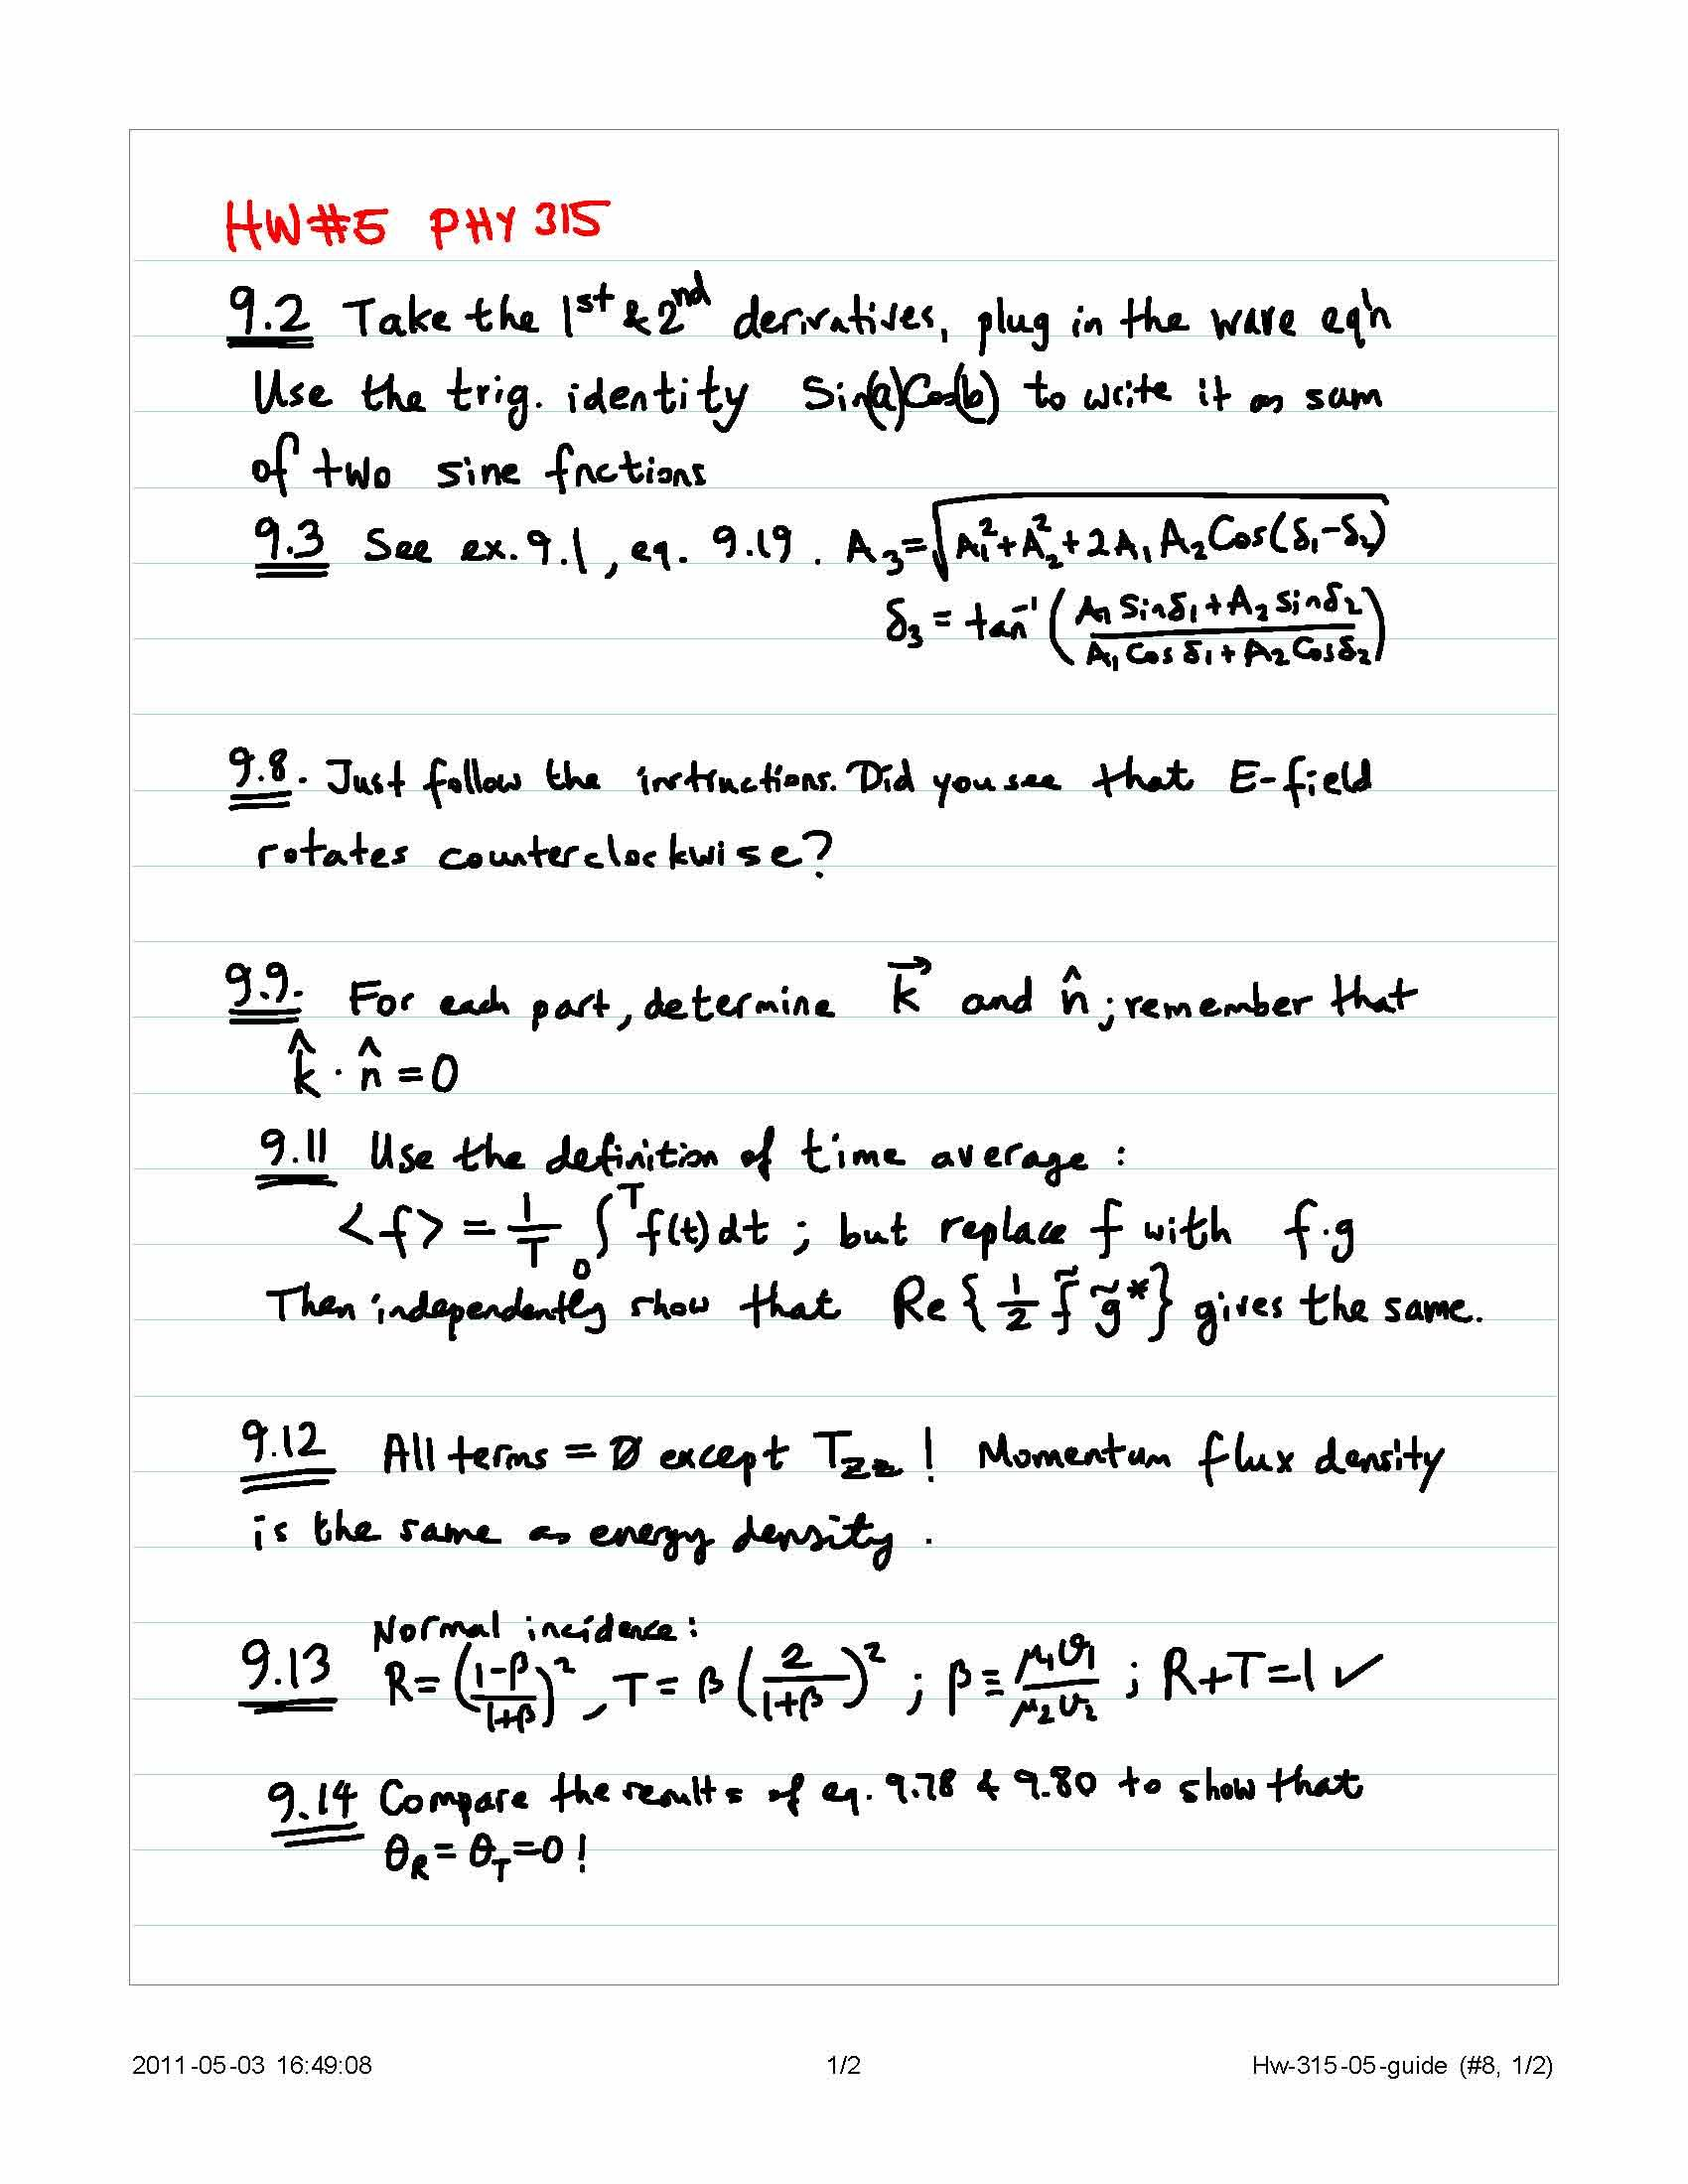 HW#5 PHY 315
9.2 Take the 1st & 2nd derivatives, plug in the wave eq'n
Use the trig. identity Sin(a)Cos(b) to write it as sum
of two sine fnctions
9.3 See ex. 9.1, eq. 9.19. A₃=√(A₁²+A₂²+2A₁A₂Cos(δ₁-δ₂))
δ₃ = tan⁻¹((A₁ Sinδ₁+A₂ Sinδ₂)/(A₁ Cos δ₁+A₂ Cosδ₂))
9.8. Just follow the instructions. Did you see that E-field
rotates counterclockwise?
9.9. For each part, determine k⃗ and n̂; remember that
k̂ · n̂ = 0
9.11 Use the definition of time average :
<f> = 1/T ∫₀ᵀ f(t) dt ; but replace f with f.g
Then independently show that Re{1/2 f̃ g̃*} gives the same.
9.12 All terms = 0 except Tzz! Momentum flux density
is the same as energy density.
Normal incidence:
9.13 R=((1-β)/(1+β))², T= β(2/(1+β))² ; β≡ μ₁v₁/μ₂v₂ ; R+T=1 ✓
9.14 Compare the results of eq. 9.78 & 9.80 to show that
θR = θT=0!
2011-05-03 16:49:08 1/2 Hw-315-05-guide (#8, 1/2)